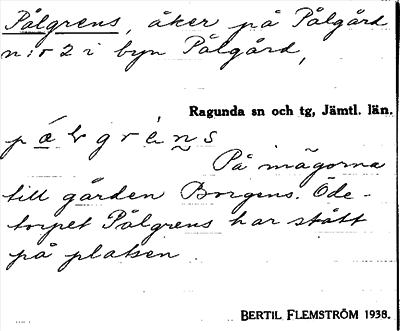 Pålgrens, åker på Pålgård
n:o 2 i byn Pålgård,
Ragunda sn och tg, Jämtl. län.
På inägorna
till gården Borgens. Öde-
torpet Pålgrens har stått
på platsen.
BERTIL FLEMSTRÖM 1938.